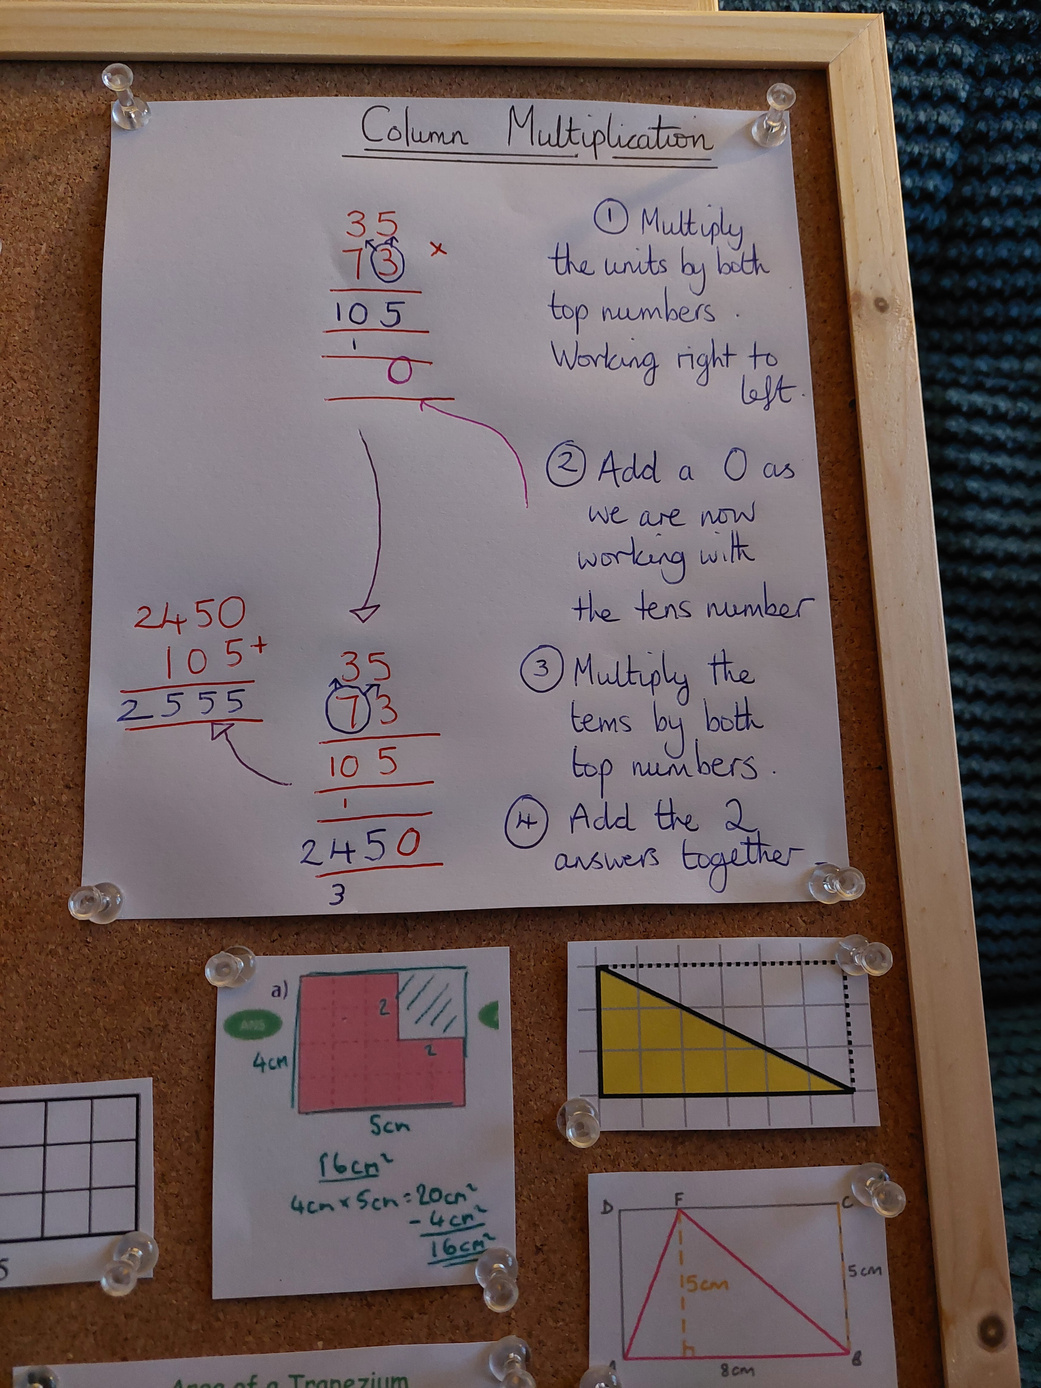 Column Multiplication
35
73 ×
105
1
0
① Multiply
the units by both
top numbers.
Working right to
left.
② Add a 0 as
we are now
working with
the tens number
2450
105+
2555
35
73
105
1
2450
3
③ Multiply the
tems by both
top numbers.
④ Add the 2
answers together
a)
ANS
2
2
4cm
5cm
16cm²
4cm×5cm=20cm²
-4cm²
16cm²
D F C
5cm
5cm
A B
8cm
5
Area of a Trapezium